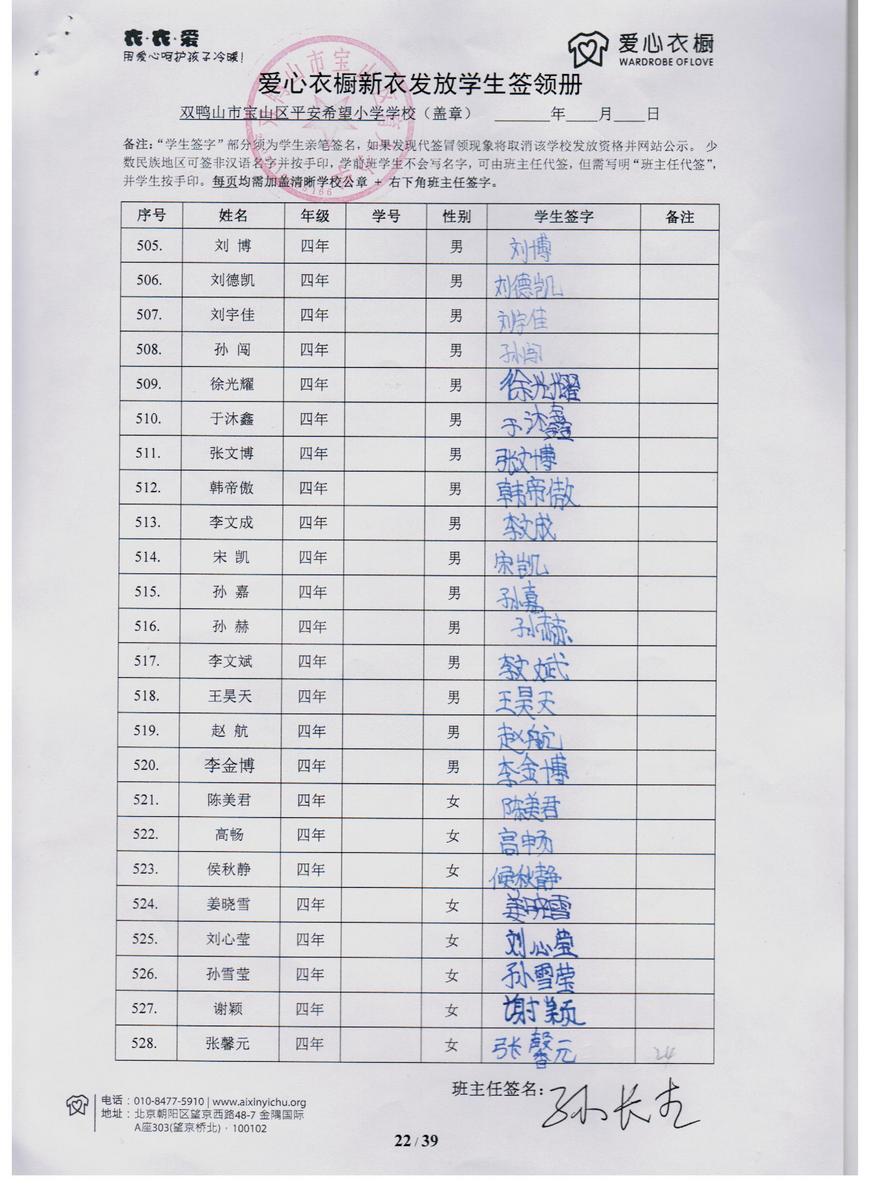 衣·衣·爱
用爱心呵护孩子冷暖!
爱心衣橱
WARDROBE OF LOVE
爱心衣橱新衣发放学生签领册
双鸭山市宝山区平安希望小学学校（盖章） ______年____月____日
备注：“学生签字”部分须为学生亲笔签名，如果发现代签冒领现象将取消该学校发放资格并网站公示。 少
数民族地区可签非汉语名字并按手印，学前班学生不会写名字，可由班主任代签，但需写明“班主任代签”，
并学生按手印。每页均需加盖清晰学校公章 + 右下角班主任签字。
序号 姓名 年级 学号 性别 学生签字 备注
505. 刘 博 四年 男 刘博
506. 刘德凯 四年 男 刘德凯
507. 刘宇佳 四年 男 刘宇佳
508. 孙 闯 四年 男 孙闯
509. 徐光耀 四年 男 徐光耀
510. 于沐鑫 四年 男 于沐鑫
511. 张文博 四年 男 张文博
512. 韩帝傲 四年 男 韩帝傲
513. 李文成 四年 男 李文成
514. 宋 凯 四年 男 宋凯
515. 孙 嘉 四年 男 孙嘉
516. 孙 赫 四年 男 孙赫
517. 李文斌 四年 男 李文斌
518. 王昊天 四年 男 王昊天
519. 赵 航 四年 男 赵航
520. 李金博 四年 男 李金博
521. 陈美君 四年 女 陈美君
522. 高畅 四年 女 高畅
523. 侯秋静 四年 女 侯秋静
524. 姜晓雪 四年 女 姜晓雪
525. 刘心莹 四年 女 刘心莹
526. 孙雪莹 四年 女 孙雪莹
527. 谢颖 四年 女 谢颖
528. 张馨元 四年 女 张馨元 24
班主任签名: 孙长
电话：010-8477-5910 | www.aixinyichu.org
地址：北京朝阳区望京西路48-7 金隅国际
A座303(望京桥北) · 100102
22 / 39